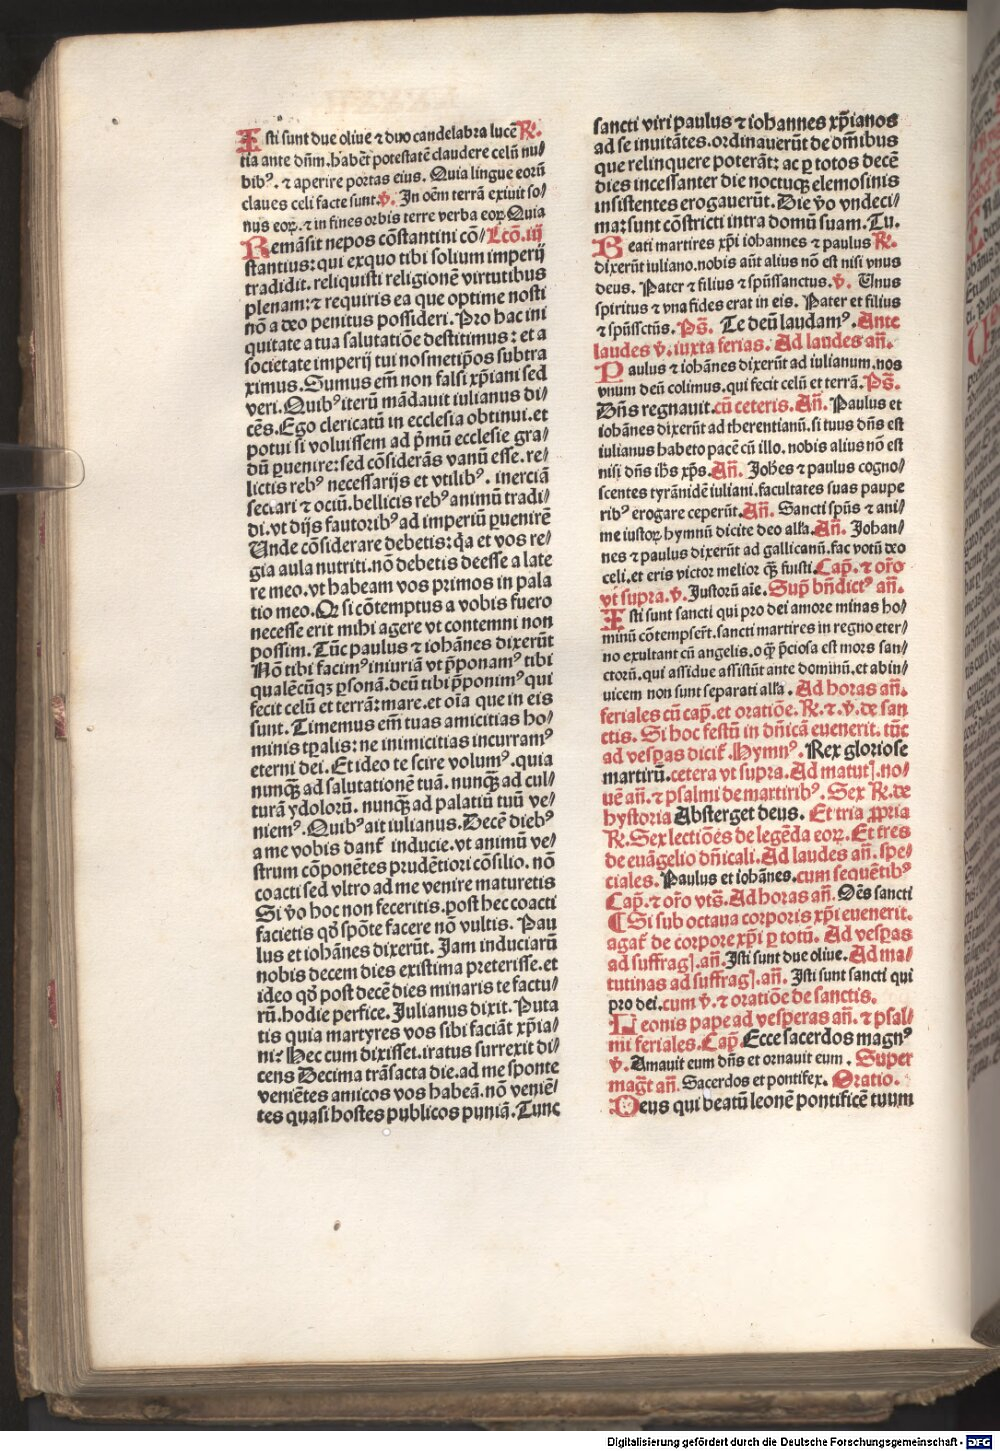 Isti sunt due oliue ⁊ duo candelabra lucē R̄.
tia ante dn̄m. habēt potestatē claudere celū nu/
bibꝰ. ⁊ aperire portas eius. Quia lingue eorū
claues celi facte sunt. v̄. In oēm terrā exiuit so/
nus eoꝝ. ⁊ in fines orbis terre verba eoꝝ Quia
Remāsit nepos cōstantini cō/ Lcō. iij
stantius: qui exquo tibi solium imperij
tradidit. reliquisti religionē virtutibus
plenam: ⁊ requiris ea que optime nosti
nō a deo penitus possideri. Pro hac ini
quitate a tua salutatiōe destitimus: et a
societate imperij tui nosmetip̄os subtra
ximus. Sumus em̄ non falsi xp̄iani sed
veri. Quibꝰ iterū mādauit iulianus di/
cēs. Ego clericatū in ecclesia obtinui. et
potui si voluissem ad p̄mū ecclesie gra/
dū ꝑuenire: sed cōsiderās vanū esse. re/
lictis rebꝰ necessarijs et vtilibꝰ. inerciā
sectari ⁊ ociū. bellicis rebꝰ animū tradi/
di. vt dijs fautoribꝰ ad imperiū ꝑuenirē
Unde cōsiderare debetis: q̄a et vos re/
gia aula nutriti. nō debetis deesse a late
re meo. vt habeam vos primos in pala
tio meo. Qꝛ si cōtemptus a vobis fuero
necesse erit mihi agere vt contemni non
possim. Tūc paulus ⁊ iohānes dixerūt
Nō tibi facimꝰ iniuriā vt p̄ponamꝰ tibi
qualēcūqꝫ ꝑsonā. deū tibi p̄ponimꝰ qui
fecit celū et terrā: mare. et oīa que in eis
sunt. Timemus em̄ tuas amicitias ho/
minis tꝑalis: ne inimicitias incurramꝰ
eterni dei. Et ideo te scire volumꝰ. quia
nunqꝫ̄ ad salutationē tuā. nunqꝫ̄ ad cul/
turā ydolorū. nunqꝫ̄ ad palatiū tuū ve/
niemꝰ. Quibꝰ ait iulianus. Decē diebꝰ
a me vobis dant̄ inducie. vt animū ve/
strum cōponētes prudētiori cōsilio. nō
coacti sed vltro ad me venire maturetis
Si v̄o hoc non feceritis. post hec coacti
facietis qd̄ spōte facere nō vultis. Pau
lus et iohānes dixerūt. Jam induciarū
nobis decem dies existima preterisse. et
ideo qd̄ post decē dies minaris te factu/
rū. hodie perfice. Julianus dixit. Puta
tis quia martyres vos sibi faciāt xp̄ia/
ni: Hec cum dixisset. iratus surrexit di/
cens Decima trāsacta die. ad me sponte
veniētes amicos vos habeā. nō veniē/
tes quasi hostes publicos puniā. Tunc
sancti viri paulus ⁊ iohannes xp̄ianos
ad se inuitātes. ordinauerūt de om̄ibus
que relinquere poterāt: ac ꝑ totos decē
dies incessanter die noctuqꝫ elemosinis
insistentes erogauerūt. Die v̄o vndeci/
ma: sunt cōstricti intra domū suam. Tu.
Beati martires xp̄i iohannes ⁊ paulus R̄.
dixerūt iuliano. nobis aūt alius nō est nisi vnus
deus. Pater ⁊ filius ⁊ spūssanctus. v̄. Unus
spiritus ⁊ vna fides erat in eis. Pater et filius
⁊ spūssctūs. Ps̄. Te deū laudamꝰ. Ante
laudes v̄. iuxta ferias. Ad laudes an̄.
Paulus ⁊ iohānes dixerūt ad iulianum. nos
vnum deū colimus. qui fecit celū et terrā. Ps̄.
Dn̄s regnauit. cū ceteris. An̄. Paulus et
iohānes dixerūt ad therentianū. si tuus dn̄s est
iulianus habeto pacē cū illo. nobis alius nō est
nisi dn̄s ih̄s xp̄s. An̄. Joh̄es ⁊ paulus cogno/
scentes tyrānidē iuliani. facultates suas paupe
ribꝰ erogare ceperūt. An̄. Sancti spūs ⁊ ani/
me iustoꝝ hymnū dicite deo alła. An̄. Johan/
nes ⁊ paulus dixerūt ad gallicanū. fac votū deo
celi. et eris victor melior qꝫ̄ fuisti. Cap̄. ⁊ or̄o
vt supra. v̄. Justorū aīe. Sup̄ bn̄dictꝰ an̄.
Isti sunt sancti qui pro dei amore minas ho/
minū cōtempser̄t. sancti martires in regno eter/
no exultant cū angelis. o qꝫ̄ p̄ciosa est mors san/
ctorū. qui assidue assistūt ante dominū. et abin/
uicem non sunt separati alła. Ad horas an̄.
feriales cū cap̄. et oratiōe. R̄. ⁊. v̄. de san
ctis. Si hoc festū in dn̄icā euenerit. tūc
ad vesꝑas dicit̄. Hymnꝰ. Rex gloriose
martirū. cetera vt supra. Ad matutꝭ. no/
uē an̄. ⁊ psalmi de martiribꝰ. Sex R̄. de
hystoria Absterget deus. Et tria ꝓpria
R̄. Sex lectiōes de legēda eoꝝ. Et tres
de euāgelio dn̄icali. Ad laudes an̄. spe/
ciales. Paulus et iohānes. cum sequētibꝰ
Cap̄. ⁊ or̄o vts̄. Ad horas an̄. Oēs sancti
¶ Si sub octaua corporis xp̄i euenerit.
agat̄ de corpore xp̄i ꝑ totū. Ad vesꝑas
ad suffragꝭ. an̄. Isti sunt due oliue. Ad ma/
tutinas ad suffragꝭ. an̄. Isti sunt sancti qui
pro dei. cum v̄. ⁊ oratiōe de sanctis.
Leonis pape ad vesperas an̄. ⁊ psal/
mi feriales. Cap̄. Ecce sacerdos magnꝰ
v̄. Amauit eum dn̄s et ornauit eum. Super
maḡt an̄. Sacerdos et pontifex. Oratio.
Deus qui beatū leonē pontificē tuum
Digitalisierung gefördert durch die Deutsche Forschungsgemeinschaft - DFG